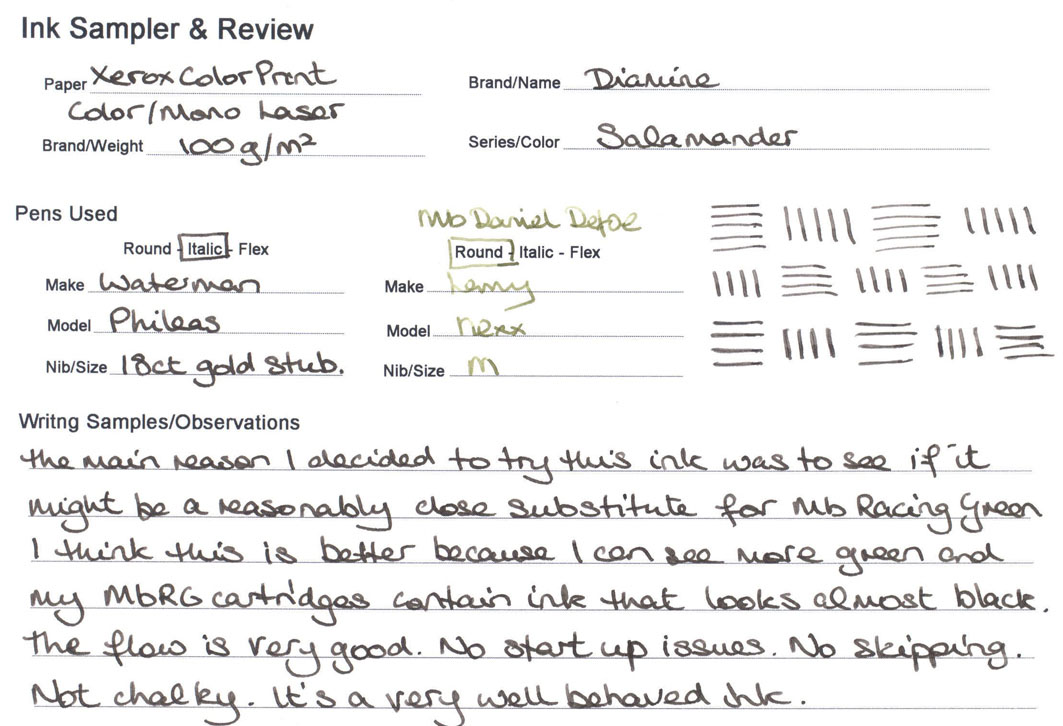 Ink Sampler & Review
Paper Xerox Color Print
Color/Mono Laser
Brand/Weight 100g/m²
Brand/Name Diamine
Series/Color Salamander
Pens Used
Round - Italic - Flex
Make Waterman
Model Phileas
Nib/Size 18ct gold stub.
Mb Daniel Defoe
Round - Italic - Flex
Make Lamy
Model nexx
Nib/Size M
Writng Samples/Observations
the main reason I decided to try this ink was to see if it
might be a reasonably close substitute for Mb Racing Green
I think this is better because I can see more green and
my MbRG cartridges contain ink that looks almost black.
The flow is very good. No start up issues. No skipping.
Not chalky. It's a very well behaved ink.